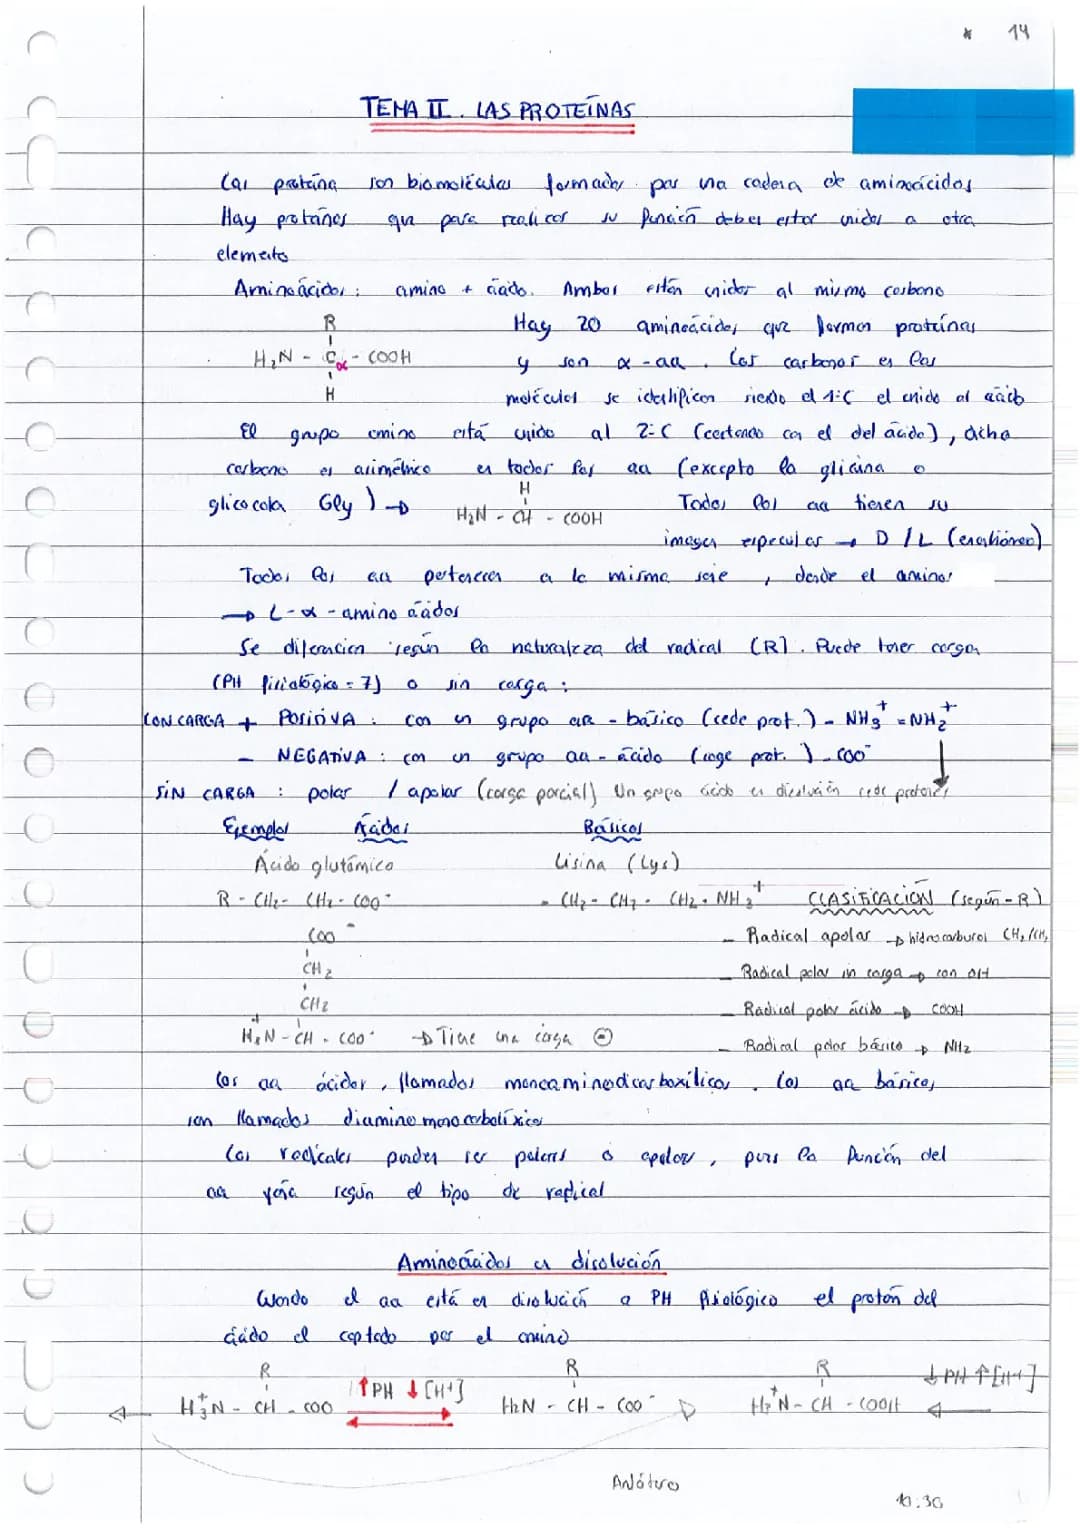 * 14
TEMA II. LAS PROTEÍNAS
Las proteína son biomoléculas formadas por una cadena de aminoácidos
Hay protaínes que para realicar su función deben estar unidos a otra
elemento
Aminoácidos: amino + ácido. Ambos están unidos al mismo carbono
R
H₂N - Cα - COOH
H
Hay 20 aminoácidos que forman proteínas
y son α-aa. Los carbonos en las
moléculas se identifican siendo el 1ºC el unido al ácido
El grupo amino está unido al 2ºC (contando con el del ácido), dicho
carbono es asimétrico en todos los aa (excepto la glicina o
glicocola Gly) →
H
H₂N - CH - COOH
Todos los aa tienen su
imagen especular → D/L (enantiómero)
Todos los aa pertenecen a la misma serie, desde el amino:
→ L-α-amino ácidos
Se diferencian según la naturaleza del radical (R). Puede tener cargas
(PH fisiológico = 7) o sin carga:
CON CARGA + POSITIVA: con un grupo aa - básico (cede prot.) - NH₃⁺ = NH₂⁺
- NEGATIVA: con un grupo aa - ácido (coge prot.) - COO⁻
SIN CARGA: polar / apolar (carga parcial) Un grupo ácido en disolución cede protones
Ejemplos Ácidos Básicos
Ácido glutámico Lisina (Lys)
R - CH₂ - CH₂ - COO⁻ - CH₂ - CH₂ - CH₂ - NH₃⁺ CLASIFICACIÓN (según - R)
COO⁻
CH₂
CH₂
H₃⁺N - CH - COO⁻ → Tiene una carga ⊖
- Radical apolar → hidrocarburos CH₂/CH₃
- Radical polar sin carga → con OH
- Radical polar ácido → COOH
- Radical polar básico → NH₂
Los aa ácidos, llamados monoaminodicarboxílicos. Los aa básicos,
son llamados diamino monocarbolíxicos
Los radicales pueden ser polares o apolares, pues la función del
aa varía según el tipo de radical
Aminoácidos en disolución
Cuando el aa está en disolución a PH fisiológico el protón del
ácido el captado por el amino
R R R
← H₃⁺N - CH - COO ↑PH ↓[H⁺] H₂N - CH - COO⁻ H₃⁺N - CH - COOH ↓PH ↑[H⁺]